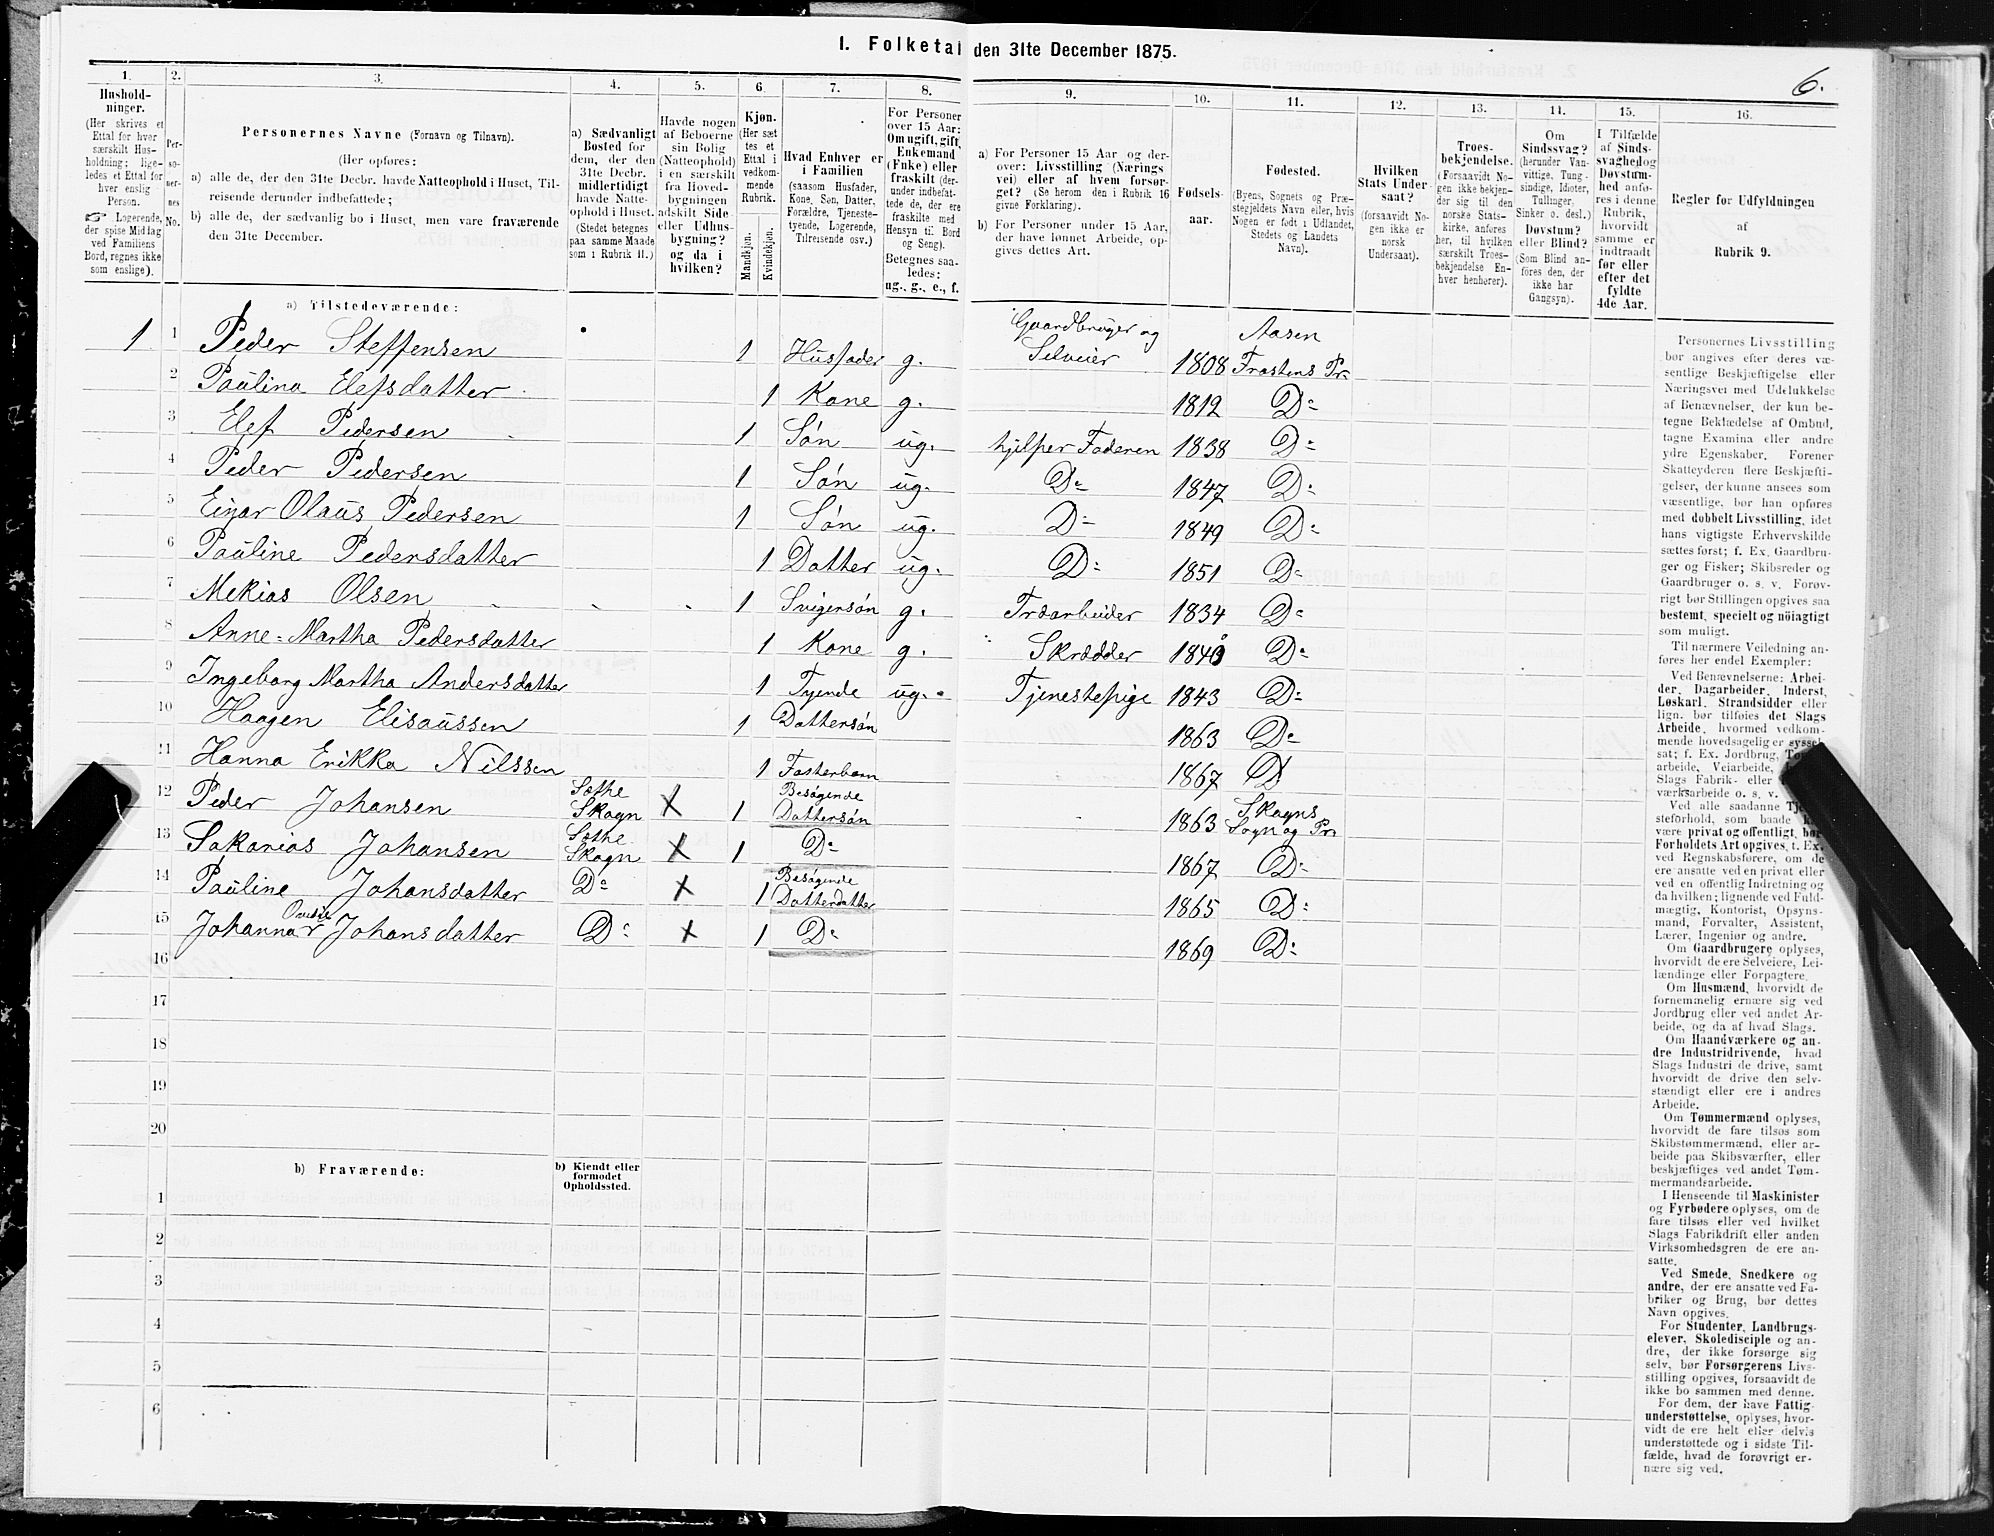 I. Folketal den 31te December 1875.
6.
1. 2. 3. 4. 5. 6. 7. 8. 9. 10. 11. 12. 13. 14. 15. 16.
Hushold-
ninger.
(Her skrives et
Ettal for hver
særskilt Hus-
holdning; lige-
ledes et Ettal for
hver enslig
Person.
☞ Logerende,
der spise Middag
ved Familiens
Bord, regnes ikke
som enslige).
Per-
so-
ner-
nes
No.
Personernes Navne (Fornavn og Tilnavn).
(Her opføres:
a) alle de, der den 31te Decbr. havde Natteophold i Huset, Til-
reisende derunder indbefattede;
b) alle de, der sædvanlig bo i Huset, men vare fraværende
den 31te December.
a) Sædvanligt
Bosted for
dem, der den
31te Decbr.
midlertidigt
havde Natte-
ophold i Huset.
(Stedet betegnes
paa samme Maade
som i Rubrik 11.)
Havde nogen
af Beboerne
sin Bolig
(Natteophold)
i en særskilt
fra Hoved-
bygningen
adskilt Side-
eller Udhus-
bygning?
og da i
hvilken?
Kjøn.
(Her sæt-
tes et
Ettal i
vedkom-
mende
Rubrik.
Mandkjøn.
Kvindekjøn.
Hvad Enhver er
i Familien
(saasom Husfader,
Kone, Søn, Datter,
Forældre, Tjeneste-
tyende, Logerende,
Tilreisende osv.)
For Personer
over 15 Aar:
Om ugift, gift,
Enkemand
(Enke) eller
fraskilt (der-
under indbefat-
tede de, der ere
fraskilte med
Hensyn til Bord
og Seng).
Betegnes saa-
ledes:
ug., g., e., f.
a) For Personer 15 Aar og der-
over: Livsstilling (Nærings-
vei) eller af hvem forsør-
get? (Se herom den i Rubrik 16
givne Forklaring).
b) For Personer under 15 Aar,
der have lønnet Arbeide, op-
gives dettes Art.
Fødsels-
aar.
Fødested.
(Byens, Sognets og Præ-
stegjeldets Navn eller, hvis
Nogen er født i Udlandet,
Stedets og Landets
Navn).
Hvilken
Stats Under-
saat?
(forsaavidt No-
gen ikke er
norsk
Undersaat).
Troes-
bekjendelse.
(Forsaavidt No-
gen ikke bekjen-
der sig til den
norske Stats-
kirke, anføres
her, til hvilken
særskilt Troes-
bekjendelse En-
hver henhører).
Om
Sindssvag?
(herunder Van-
vittige, Tung-
sindige, Idioter,
Tullinger,
Sinker o. desl.)
Døvstum?
eller Blind?
(Som Blind an-
føres den, der
ikke har
Gangsyn).
I Tilfælde
af Sinds-
svaghed og
Døvstum-
hed anfø-
res i denne
Rubrik,
hvorvidt
samme er
indtraadt
før eller
efter det
fyldte
4de Aar.
Regler for Udfyldningen
af
Rubrik 9.
a) Tilstedeværende:
1 1 Peder Steffensen 1 Husfader g. Gaardbruger og Selveier 1808 Aasen Frostens Pr.
2 Paulina Elefsdatter 1 Kone g. 1812 Do
3 Elef Pedersen 1 Søn ug. hjelper Faderen 1838 Do
4 Peder Pedersen 1 Søn ug. Do 1847 Do
5 Einar Olaus Pedersen 1 Søn ug. Do 1849 Do
6 Pauline Pedersdatter 1 Datter ug. Do 1851 Do
7 Mekias Olsen 1 Svigersøn g. Træarbeider 1834 Do
8 Anne-Martha Pedersdatter 1 Kone g. Skrædder 1840 Do
9 Ingeborg Martha Andersdatter 1 Tyende ug. Tjenestepige 1843 Do
10 Haagen Elisaussen 1 Dattersøn 1863 Do
11 Hanna Erikka Nilssen 1 Fosterbarn 1867 D
12 Peder Johansen Sothe Skogn X 1 Besøgende Dattersøn 1863 Skogns Sogn og Pr.
13 Sakarias Johansen Sothe Skogn X 1 Do 1867 Do
14 Pauline Johansdatter Do X 1 Besøgende Datterdatter 1865 Do
15 Johanna Johansdatter Do X 1 Do 1869 Do
16
17
18
19
20
b) Fraværende:
b) Kjendt eller
formodet
Opholdssted.
1
2
3
4
5
6
Personernes Livsstilling
bør angives efter deres væ-
sentlige Beskjæftigelse eller
Næringsvei med Udelukkelse
af Benævnelser, der kun be-
tegne Beklædelse af Ombud,
tagne Examina eller andre
ydre Egenskaber. Forener
Skatteyderen flere Beskjæfti-
gelser, der kunne ansees som
væsentlige, bør han opføres
med dobbelt Livsstilling, idet
hans vigtigste Erhvervskilde
sættes først; f. Ex. Gaardbru-
ger og Fisker; Skibsreder og
Gaardbruger o. s. v. Forøv-
rigt bør Stillingen opgives saa
bestemt, specielt og nöiagtigt
som muligt.
Til nærmere Veiledning an-
føres her endel Exempler:
Ved Benævnelserne: Arbei-
der, Dagarbeider, Inderst,
Løskarl, Strandsidder eller
lign. bør tilføies det Slags
Arbeide, hvormed vedkom-
mende hovedsagelig er syssel-
sat; f. Ex. Jordbrug,
arbeide, Veiarbeide,
Slags Fabrik- eller
værksarbeide o. s. v.
Ved alle saadanne
steforhold, som baade
være privat og offentlig, bør
Forholdets Art opgives, t. Ex.
ved Regnskabsførere, om de
ere ansatte ved en privat eller
ved en offentlig Indretning og
da hvilken; lignende ved Fuld-
mægtig, Kontorist, Opsyns-
mand, Forvalter, Assistent,
Lærer, Ingeniør og andre.
Om Gaardbrugere oplyses,
hvorvidt de ere Selveiere, Lei-
lændinge eller Forpagtere.
Om Husmænd, hvorvidt de
fornemmelig ernære sig ved
Jordbrug eller ved andet Ar-
beide, og da af hvad Slags.
Om Haandværkere og an-
dre Industridrivende, hvad
Slags Industri de drive, samt
hvorvidt de drive den selv-
stændigt eller ere i andres
Arbeide.
Om Tømmermænd oplyses,
hvorvidt de fare tilsøs som
Skibstømmermænd, eller ar-
beide paa Skibsværfter, eller
beskjæftiges ved andet Tøm-
mermandsarbeide.
I Henseende til Maskinister
og Fyrbødere oplyses, om de
fare tilsøs eller ved hvilket
Slags Fabrikdrift eller anden
Virksomhedsgren de ere an-
satte.
Ved Smede, Snedkere og
andre, der ere ansatte ved Fa-
briker og Brug, bør dettes
Navn opgives.
For Studenter, Landbrugs-
elever, Skoledisciple og an-
dre, der ikke forsørge sig
selv, bør Forsørgerens Livs-
stilling opgives, forsaavidt de
ikke bo sammen med denne.
For dem, der have Fattig-
understøttelse, oplyses, hvor-
vidt de ere helt eller delvis
understøttede og i sidste Til-
fælde, hvad de forøvrigt er-
nære sig ved.